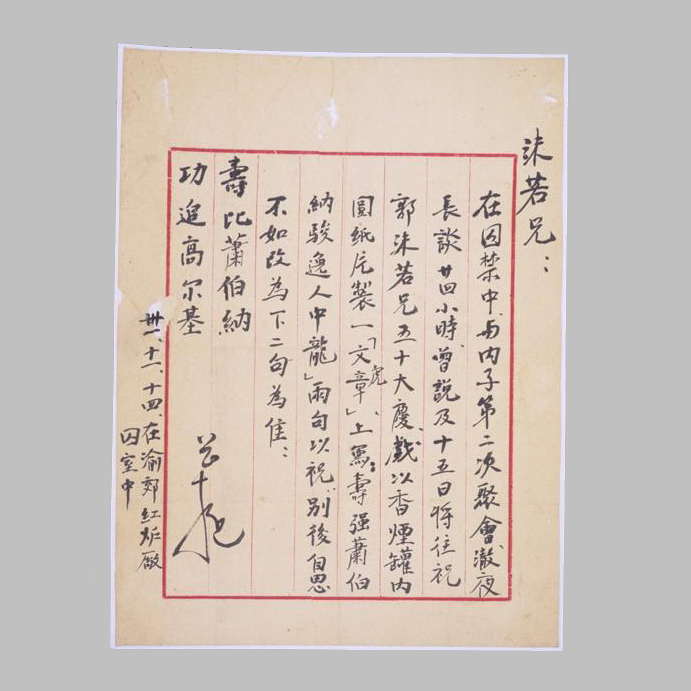 沫若兄：
在囚禁中、与内子第二次聚會、澈夜
長談廿四小時、曾說及十五日将往祝
郭沫若兄五十大慶、戲以香煙罐内
圓紙片製一「文章」、虎
上寫：壽强蕭伯
納駿逸人中龍」兩句以祝、别後自思
不如改為下二句為佳：
壽比蕭伯納
功追高尔基
卅一、十一、十四、在渝郊红炉廠
囚室中